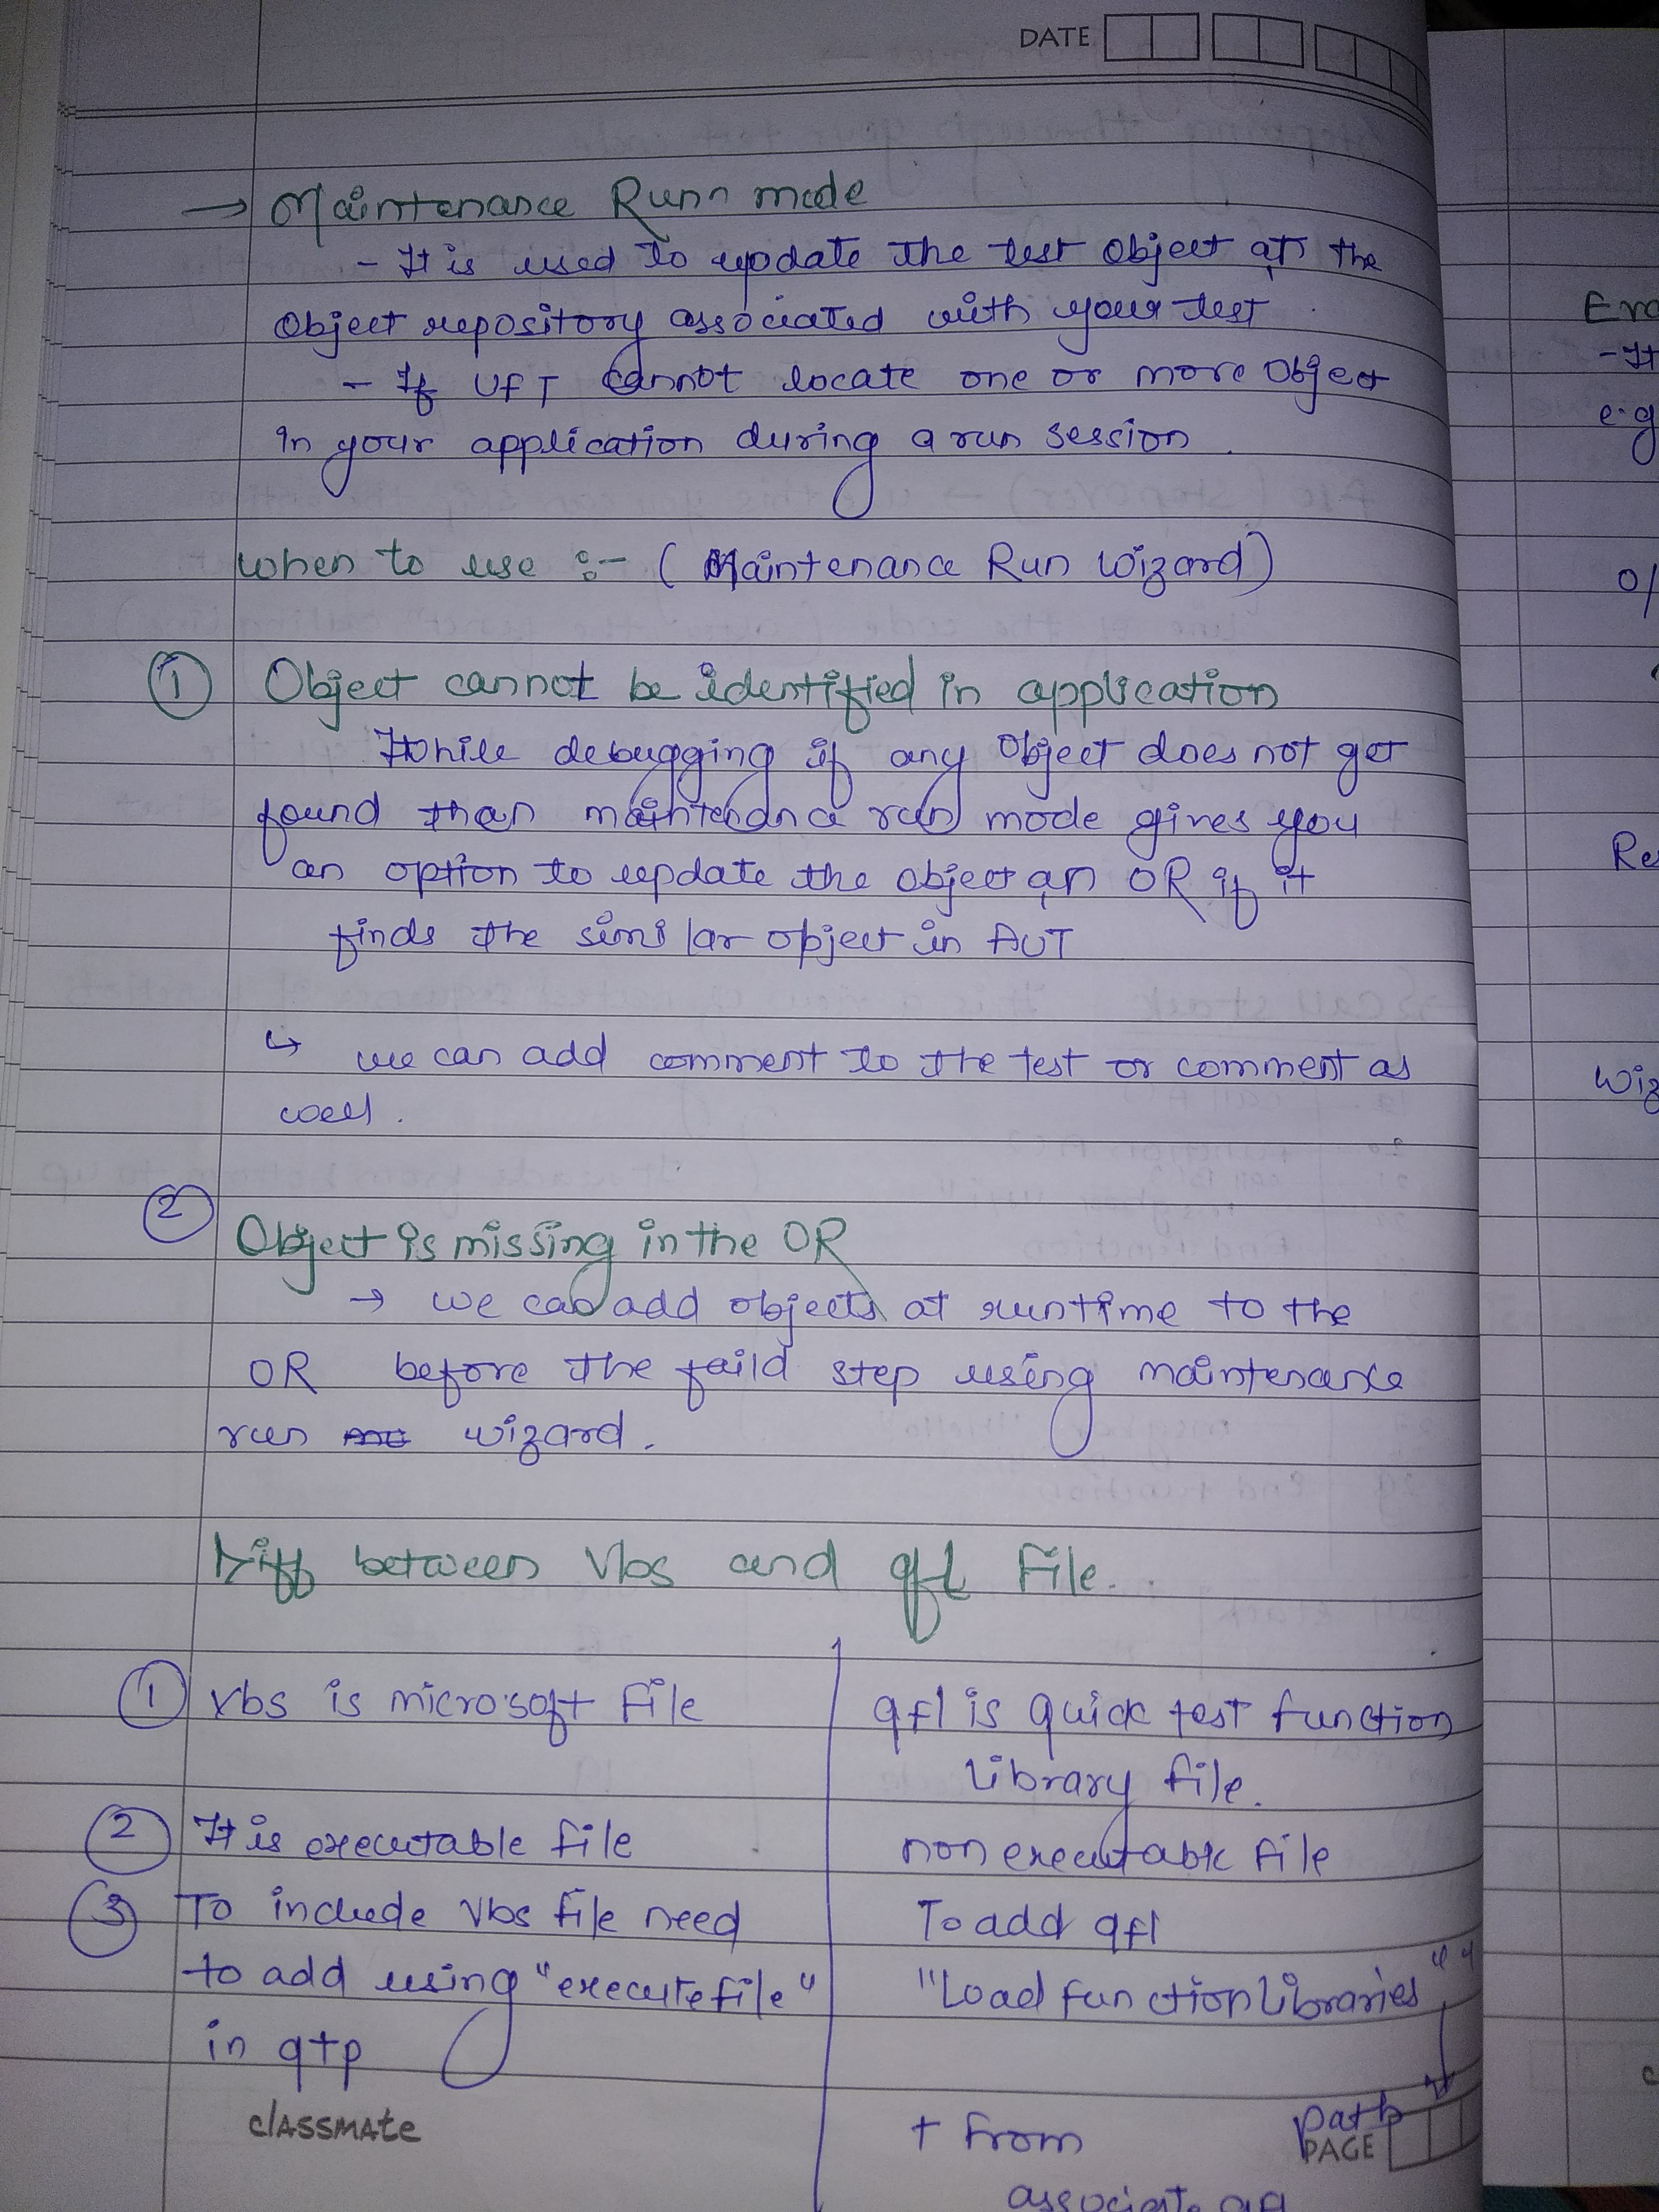 DATE
→ Maintenance Runn mode
- It is used to update the test object in the
object repository associated with your test
- If UFT cannot locate one or more object
in your application during a run session.
when to use :- (Maintenance Run Wizard)
① Object cannot be identified in application
While debugging if any object does not get
found than maintenance run mode gives you
an option to update the object in OR if it
finds the similar object in AUT
↳ we can add comment to the test or comment as
well.
② Object is missing in the OR
→ we can add objects at runtime to the
OR before the faild step using maintenance
run wizard.
Diff between vbs and qfl file.
① vbs is microsoft file
qfl is quick test function
library file.
② It is executable file
non executable file
③ To include vbs file need
to add using "executefile"
in qtp
To add qfl
"Load function libraries" "
path
+ from
associate qfl
classmate
PAGE
- It
e.g
O/
Re
Wiz